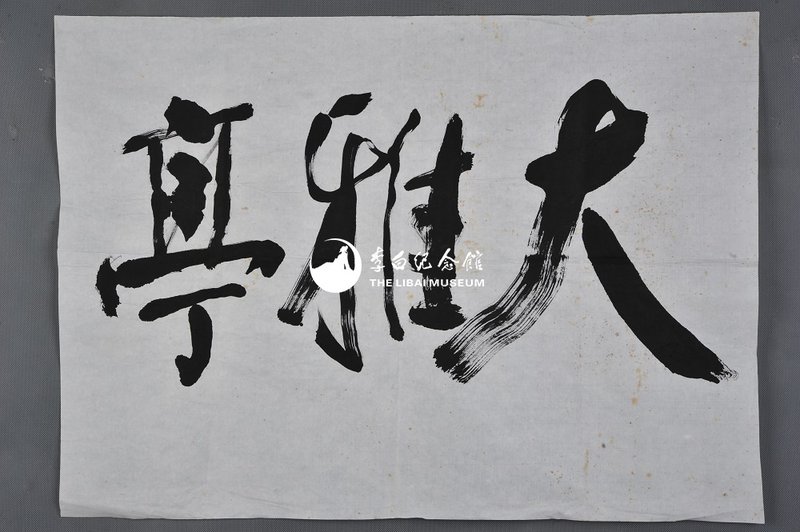 大雅亭
李白纪念馆
THE LIBAI MUSEUM